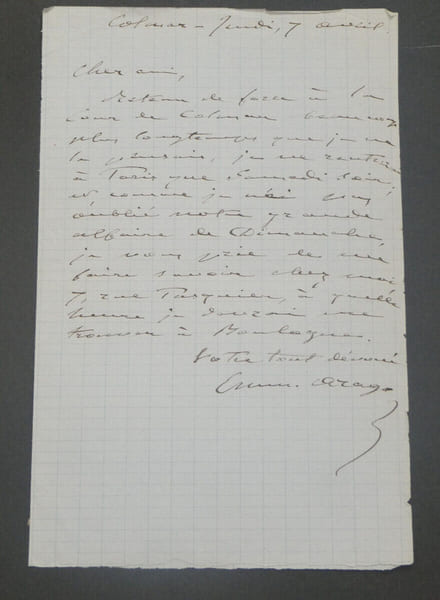 Colmar - Jeudi, 7 avril.
Cher ami,
Retenu de force à la
Cour de Colmar beaucoup
plus longtemps que je ne
le pensais, je ne rentrerai
à Paris que Samedi soir;
et comme je n'ai pas
oublié notre grande
affaire de Dimanche,
je vous prie de me
faire savoir chez moi
7, rue Pasquier, à quelle
heure je devrai me
trouver à Boulogne.
Votre tout dévoué
Emm. Arago